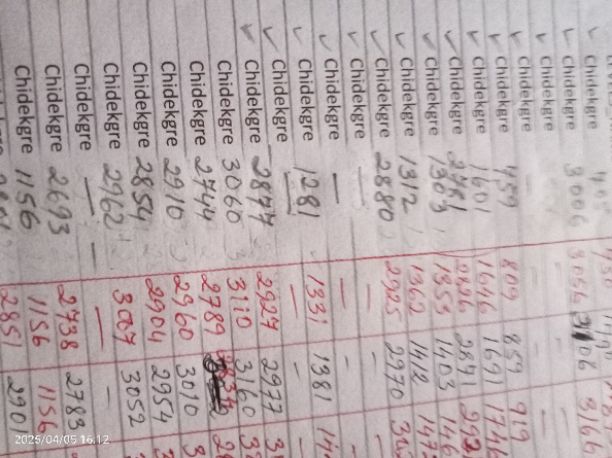 ✓ Chidekgre 3006 3056 3106 3166
✓ Chidekgre — — —
✓ Chidekgre — — —
✓ Chidekgre 759 809 859 919
✓ Chidekgre 1601 1646 1691 1746
✓ Chidekgre
✓ Chidekgre 1303 1353 1403 146
✓ Chidekgre 1312 1362 1412 147
✓ Chidekgre 2880 2925 2970
✓ Chidekgre — — —
✓ Chidekgre — — —
✓ Chidekgre 1281 1331 1381 14
✓ Chidekgre — — —
✓ Chidekgre 2877 2927 2977 3
✓ Chidekgre 3060 3110 3160 3
Chidekgre 2744 2789
Chidekgre 2910 2960 3010 3
Chidekgre 2854 2904 2954
Chidekgre 2962 3007 3052
Chidekgre — — —
Chidekgre 2693 2738 2783
Chidekgre 1156 1156 1156
2851 2901
2025/04/05 16.12